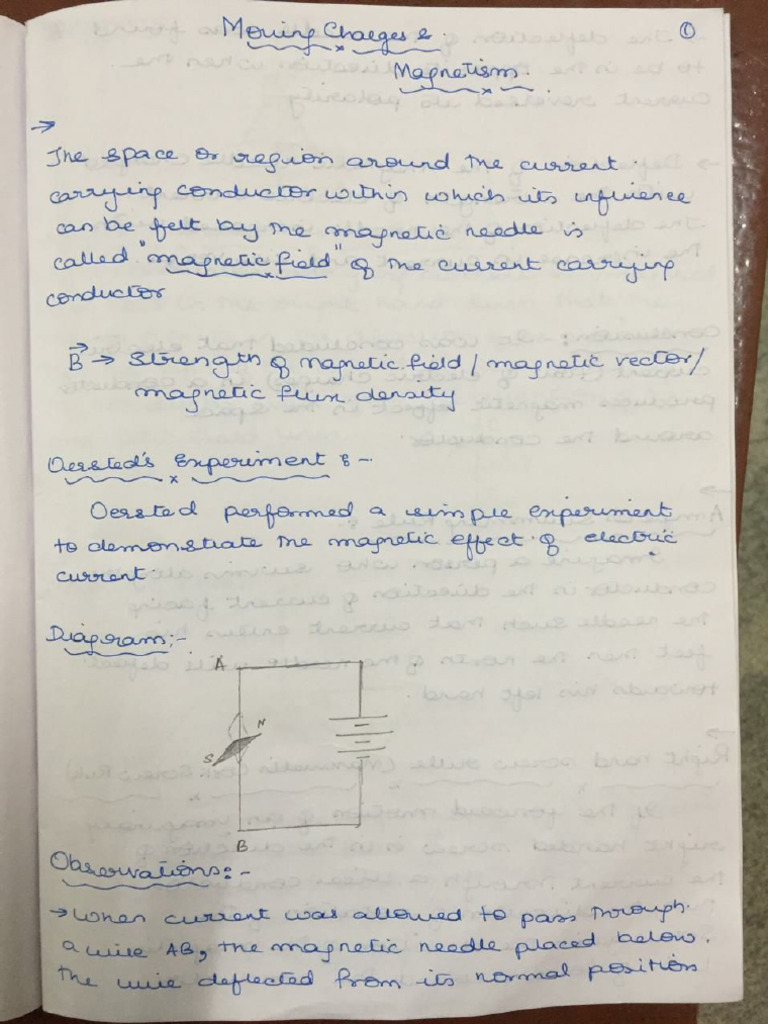 Moving Charges &
①
Magnetism.
→
The space or region around the current
carrying conductor within which its influence
can be felt by the magnetic needle is
called "magnetic field" of the current carrying
conductor
B⃗ → Strength of magnetic field / magnetic vector/
magnetic flux density
Oersted's Experiment :-
Oersted performed a simple experiment
to demonstrate the magnetic effect of electric
current.
Diagram:-
A
N
S
B
Observations:-
→ When current was allowed to pass through
a wire AB, the magnetic needle placed below
the wire deflected from its normal position